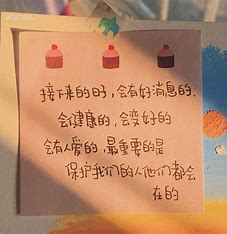 接下来的日子,会有好消息的.
会健康的,会变好的
会有人爱的,最重要的是
保护我们的人他们都会
在的